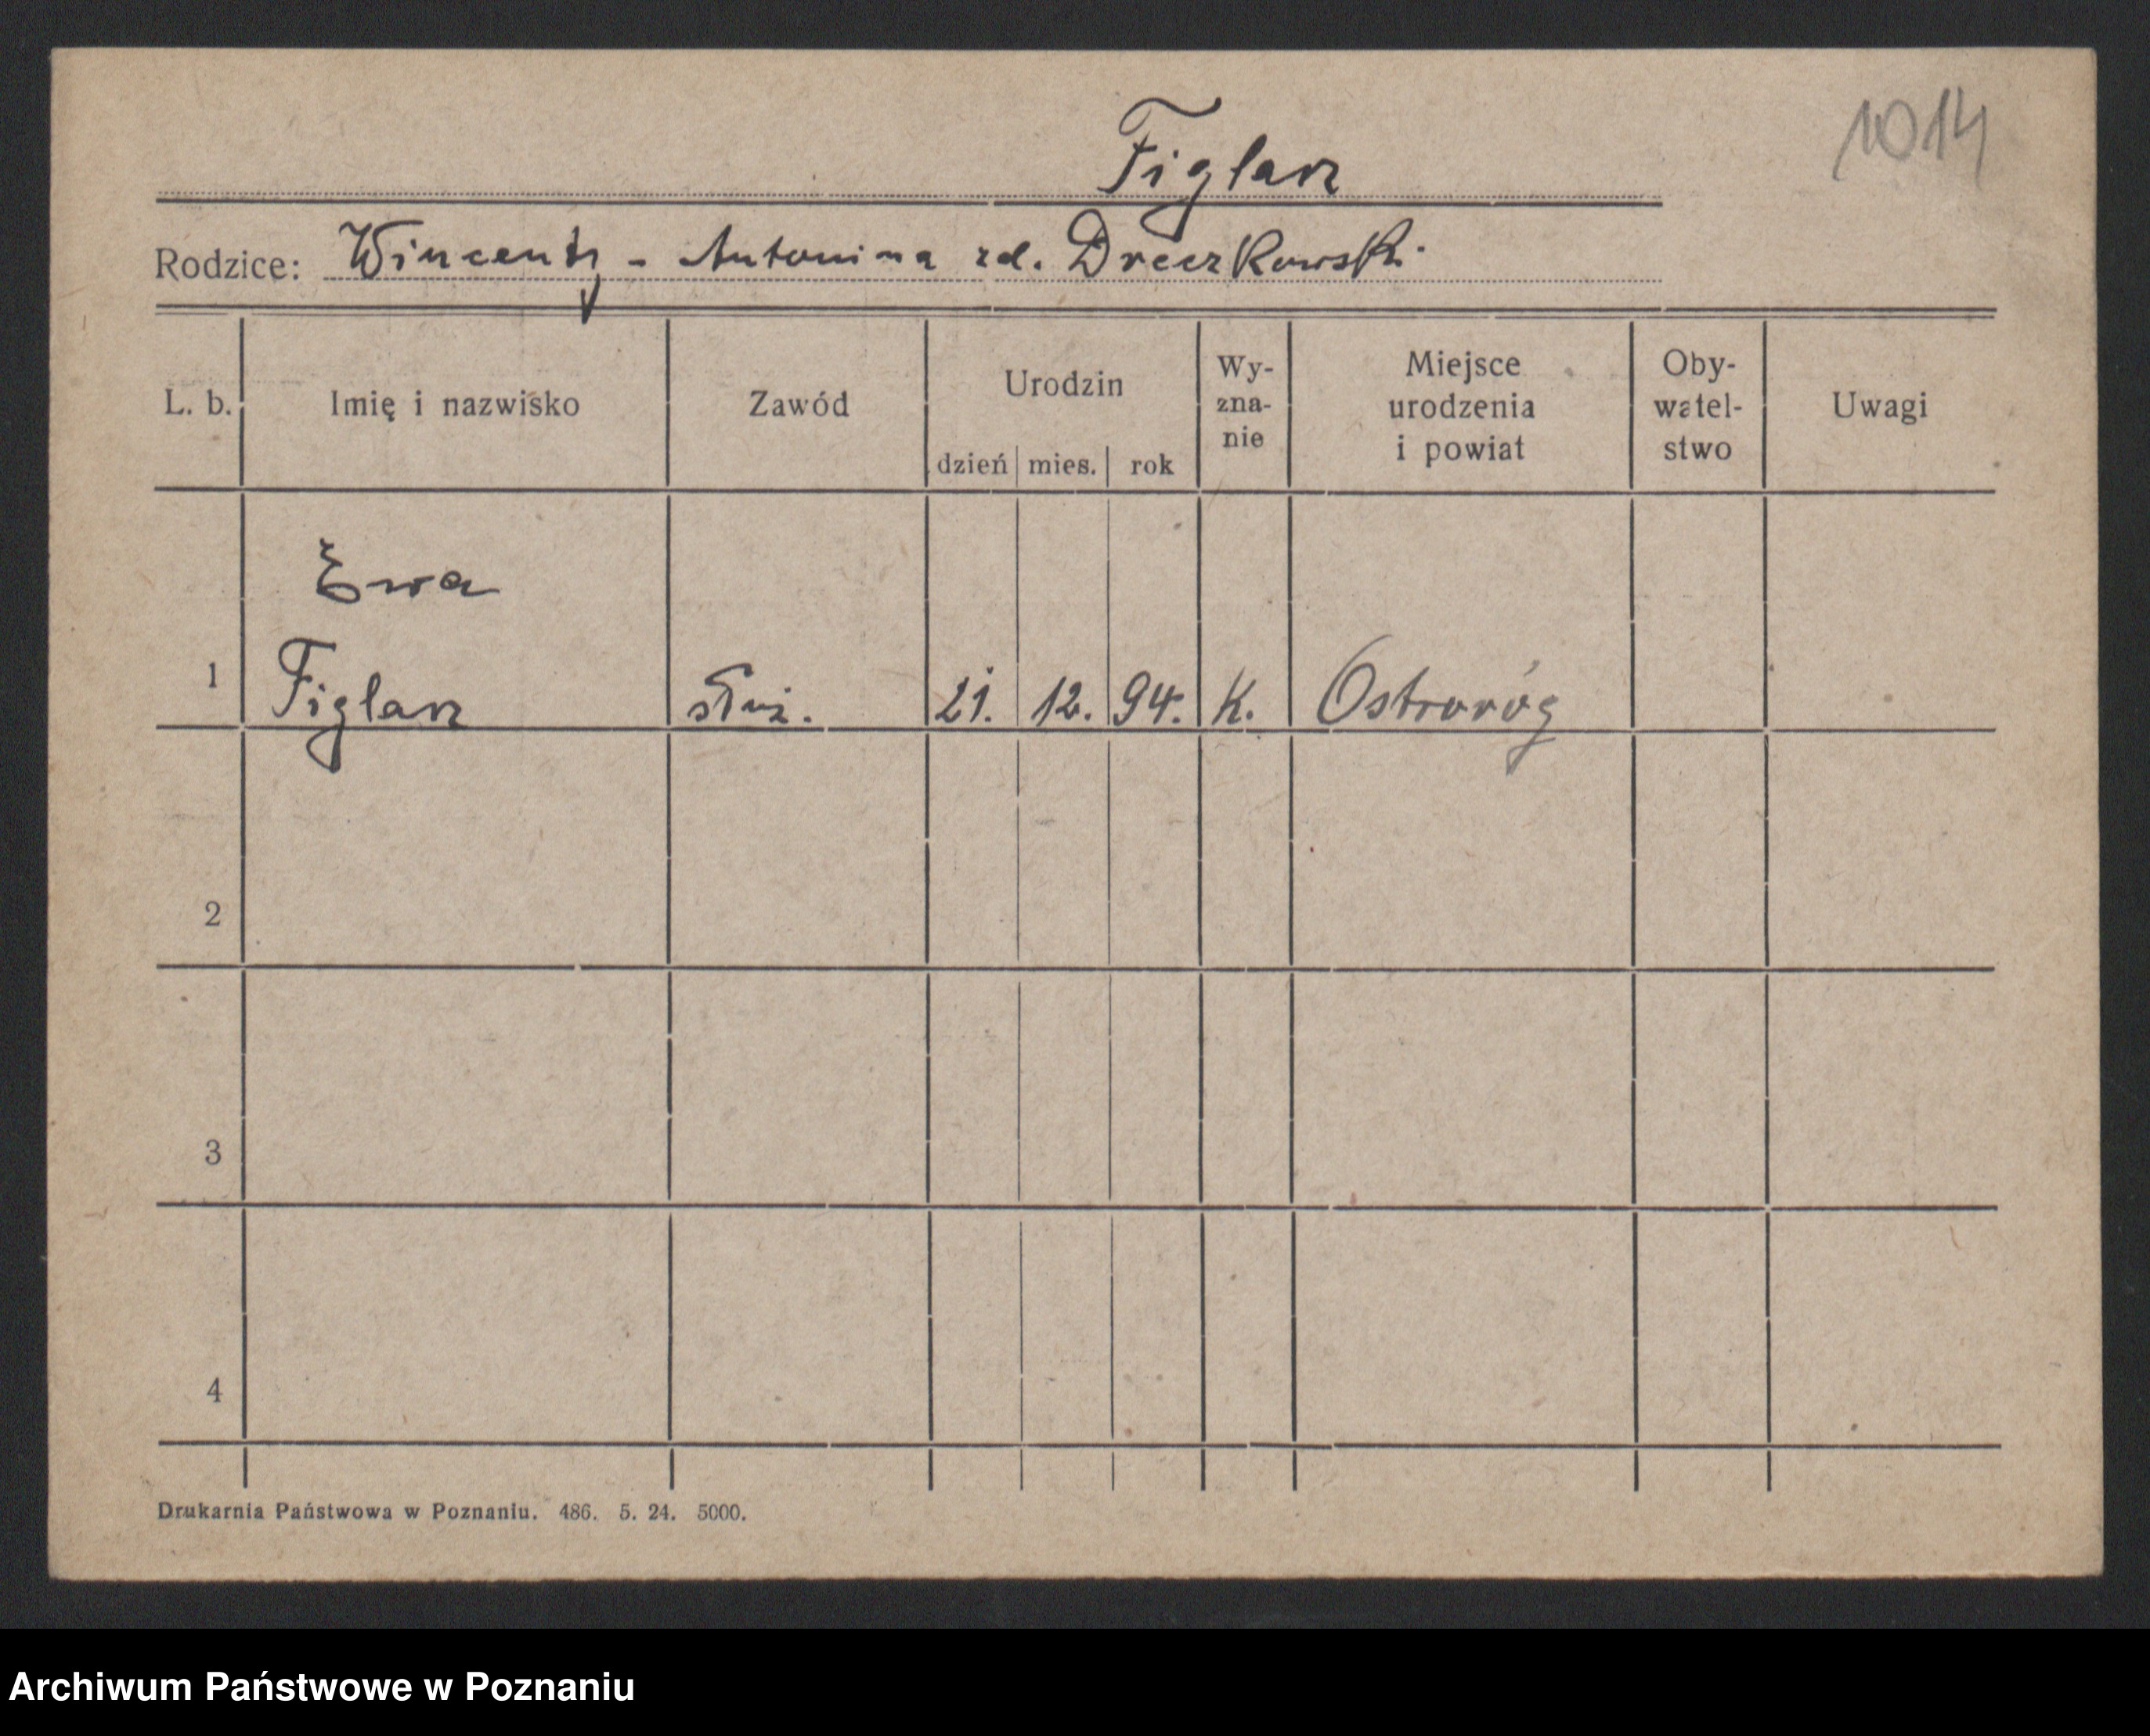 1014
Figlarz
Rodzice: Wincenty - Antonina zd. Dreczkowski
L. b. Imię i nazwisko Zawód Urodzin dzień mies. rok Wy- zna- nie Miejsce urodzenia i powiat Oby- watel- stwo Uwagi
Ewa
1 Figlarz służ. 21. 12. 94. K. Ostroróg
2
3
4
Drukarnia Państwowa w Poznaniu. 486. 5. 24. 5000.
Archiwum Państwowe w Poznaniu